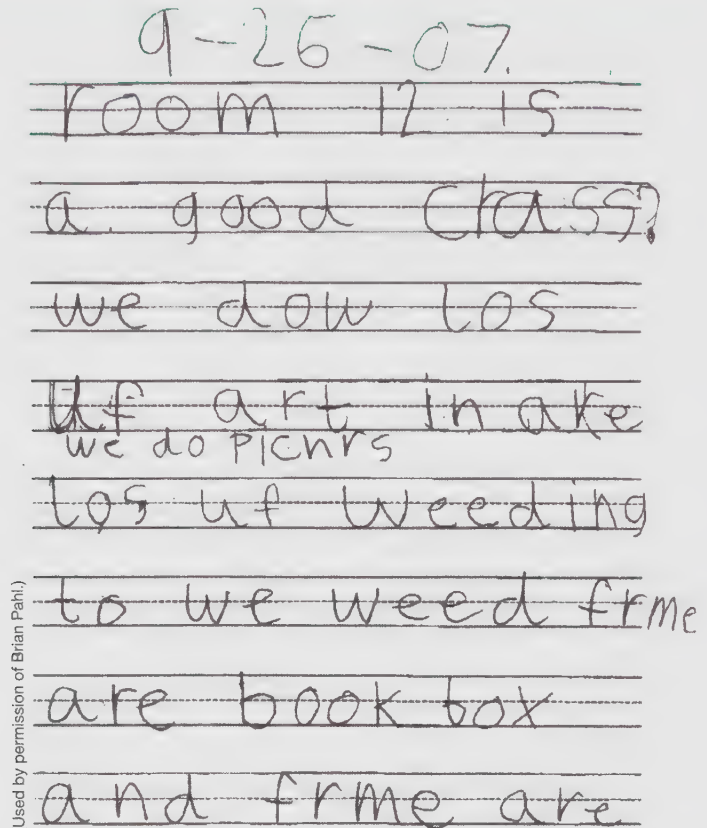 9-26-07.
room 12 is
a. good class?
we dow los
uf art in ake
we do picnrs
los uf weeding
to we weed frme
are book box
and frme are
Used by permission of Brian Pahl.)